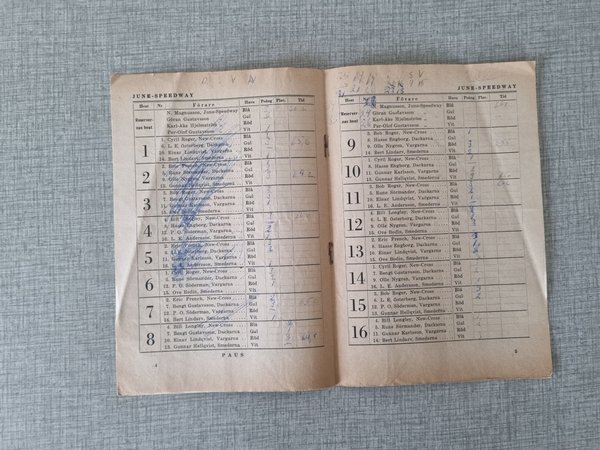 JUNE-SPEEDWAY
Heat Nr Förare Huva Poäng Plac. Tid
Reservernas heat
N. Magnusson, June-Speedway Blå
Göran Gustafsson Gul
Karl-Åke Hjelmström Röd
Per-Olof Gustavsson Vit
1
1. Cyril Roger, New-Cross Blå
6. L. E. Österberg, Dackarna Gul
10. Einar Lindqvist, Vargarna Röd
14. Bert Lindarv, Smederna Vit
2
2. Eric French, New-Cross Blå
5. Rune Sörmander, Dackarna Gul
9. Olle Nygren, Vargarna Röd
13. Gunnar Hellqvist, Smederna Vit
3
Roger, New-Cross Blå
7. Bengt Gustavsson, Dackarna Gul
11. Gunnar Karlsson, Vargarna Röd
15. Smederna Vit
4
4. Longley, New-Cross Blå
8. Hasse Engborg, Dackarna Gul
Söderman, Vargarna Röd
16. L. E. Andersson, Smederna Vit
5
2. Eric French, New-Cross Blå
Österberg, Dackarna Gul
Gunnar Karlsson, Vargarna Röd
Andersson, Smederna Vit
6
Roger, New-Cross Blå
Rune Sörmander, Dackarna Gul
12. P. O. Söderman, Vargarna Röd
15. Ove Bodin, Smederna Vit
7
2. Eric French, New-Cross Blå
7. Bengt Gustavsson, Dackarna Gul
12. P. O. Söderman, Vargarna Röd
14. Bert Lindarv, Smederna Vit
8
4. Bill Longley, New-Cross Blå
7. Bengt Gustavsson, Dackarna Gul
10. Einar Lindqvist, Vargarna Röd
13. Gunnar Hellqvist, Smederna Vit
PAUS
4
JUNE-SPEEDWAY
Heat Nr Förare Huva Poäng Plac. Tid
Reservernas heat
N. Magnusson, June-Speedway Blå
Göran Gustafsson Gul
Karl-Åke Hjelmström Röd
Per-Olof Gustavsson Vit
9
3. Bob Roger, New-Cross Blå
8. Hasse Engborg, Dackarna Gul
9. Olle Nygren, Vargarna Röd
14. Bert Lindarv, Smederna Vit
10
1. Cyril Roger, New-Cross Blå
8. Hasse Engborg, Dackarna Gul
11. Gunnar Karlsson, Vargarna Röd
13. Gunnar Hellqvist, Smederna Vit
11
3. Bob Roger, New-Cross Blå
5. Rune Sörmander, Dackarna Gul
10. Einar Lindqvist, Vargarna Röd
16. L. E. Andersson, Smederna Vit
12
4. Bill Longley, New-Cross Blå
6. L. E. Österberg, Dackarna Gul
9. Olle Nygren, Vargarna Röd
15. Ove Bodin, Smederna Vit
13
2. Eric French, New-Cross Blå
8. Hasse Engborg, Dackarna Gul
10. Einar Lindqvist, Vargarna Röd
15. Ove Bodin, Smederna Vit
14
1. Cyril Roger, New-Cross Blå
7. Bengt Gustavsson, Dackarna Gul
9. Olle Nygren, Vargarna Röd
16. L. E. Andersson, Smederna Vit
15
3. Bob Roger, New-Cross Blå
6. L. E. Österberg, Dackarna Gul
12. P. O. Söderman, Vargarna Röd
13. Gunnar Hellqvist, Smederna Vit
16
4. Bill Longley, New-Cross Blå
5. Rune Sörmander, Dackarna Gul
11. Gunnar Karlsson, Vargarna Röd
14. Bert Lindarv, Smederna Vit
5